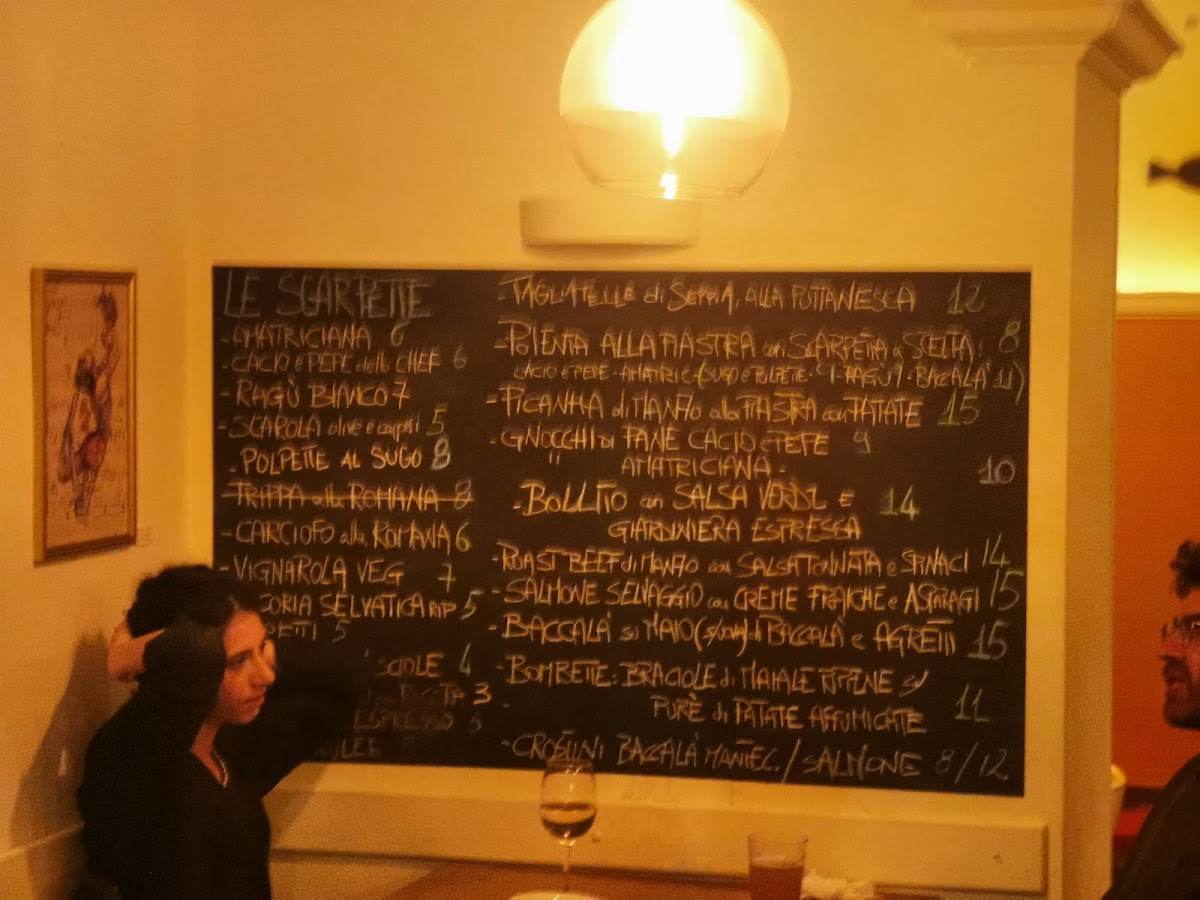 LE SCARPETTE
- AMATRICIANA 6
- CACIO e PEPE dello CHEF 6
- RAGÙ BIANCO 7
- SCAROLA olive e capperi 5
- POLPETTE AL SUGO 8
- TRIPPA alla ROMANA 8
- CARCIOFO alla ROMANA 6
- VIGNAROLA VEG 7
CORIA SELVATICA RIP 5
ETTI 5
SCIOLE 4
3
5
- TAGLIATELLE di SEPPIA, ALLA PUTTANESCA 12
- POLENTA ALLA PIASTRA con SCARPETTA a SCELTA: 8
CACIO e PEPE - AMATRIC - (SUGO e POLPETTE - 9 - RAGÙ 9 - BACCALÀ 11)
- PICANHA di MANZO alla PIASTRA con PATATE 15
- GNOCCHI di PANE CACIO e PEPE 9
" AMATRICIANA - 10
- BOLLITO con SALSA VERDE E 14
GIARDINIERA ESPRESSA
- ROAST BEEF di MANZO con SALSA TONNATA e SPINACI 14
- SALMONE SELVAGGIO con CREME FRAICHE e ASPARAGI 15
- BACCALA' su MAIO (s/uova) di BACCALA' e AGRETTI 15
- BOMBETTE: BRACIOLE di MAIALE RIPIENE su
PURÈ di PATATE AFFUMICATE 11
- CROSTINI BACCALA' MANTEC. / SALMONE 8/12